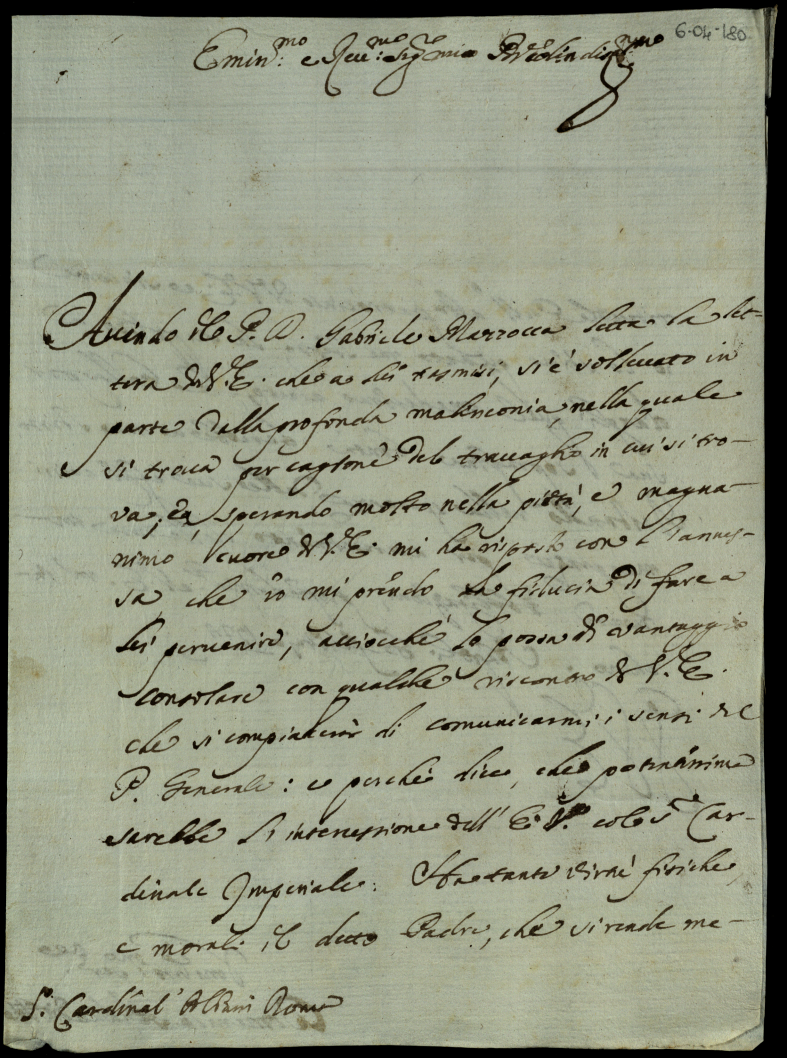 6-04-180
Emin.mo e Reu.mo Sig.re mio P.rone
Auendo il P. D. Gabriele Marzocca letta la let-
tera di V.E. che a lei trasmisi, si è solleuato in
parte dalla profonda malinconia, nella quale
si troua per cagione del trauaglio in cui si tro-
ua, ed, sperando molto nella pietà, e magna-
nimo cuore di V.E. mi hà risposto con l'annes-
sa, che io mi prendo la fiducia di fare a
lei peruenire, acciocchè lo possa di vantaggio
consolare con qualche riscontro di V.E.
che si compiacerà di comunicarmi i sensi del
P. Generale: e perchè dice, che potentissima
sarebbe l'intercessione dell' E.V. col S.re Car-
dinale Imperiale. Ha tante virtù fisiche,
e morali il detto Padre, che si rende me-
S.r Cardinal' Albani Roma